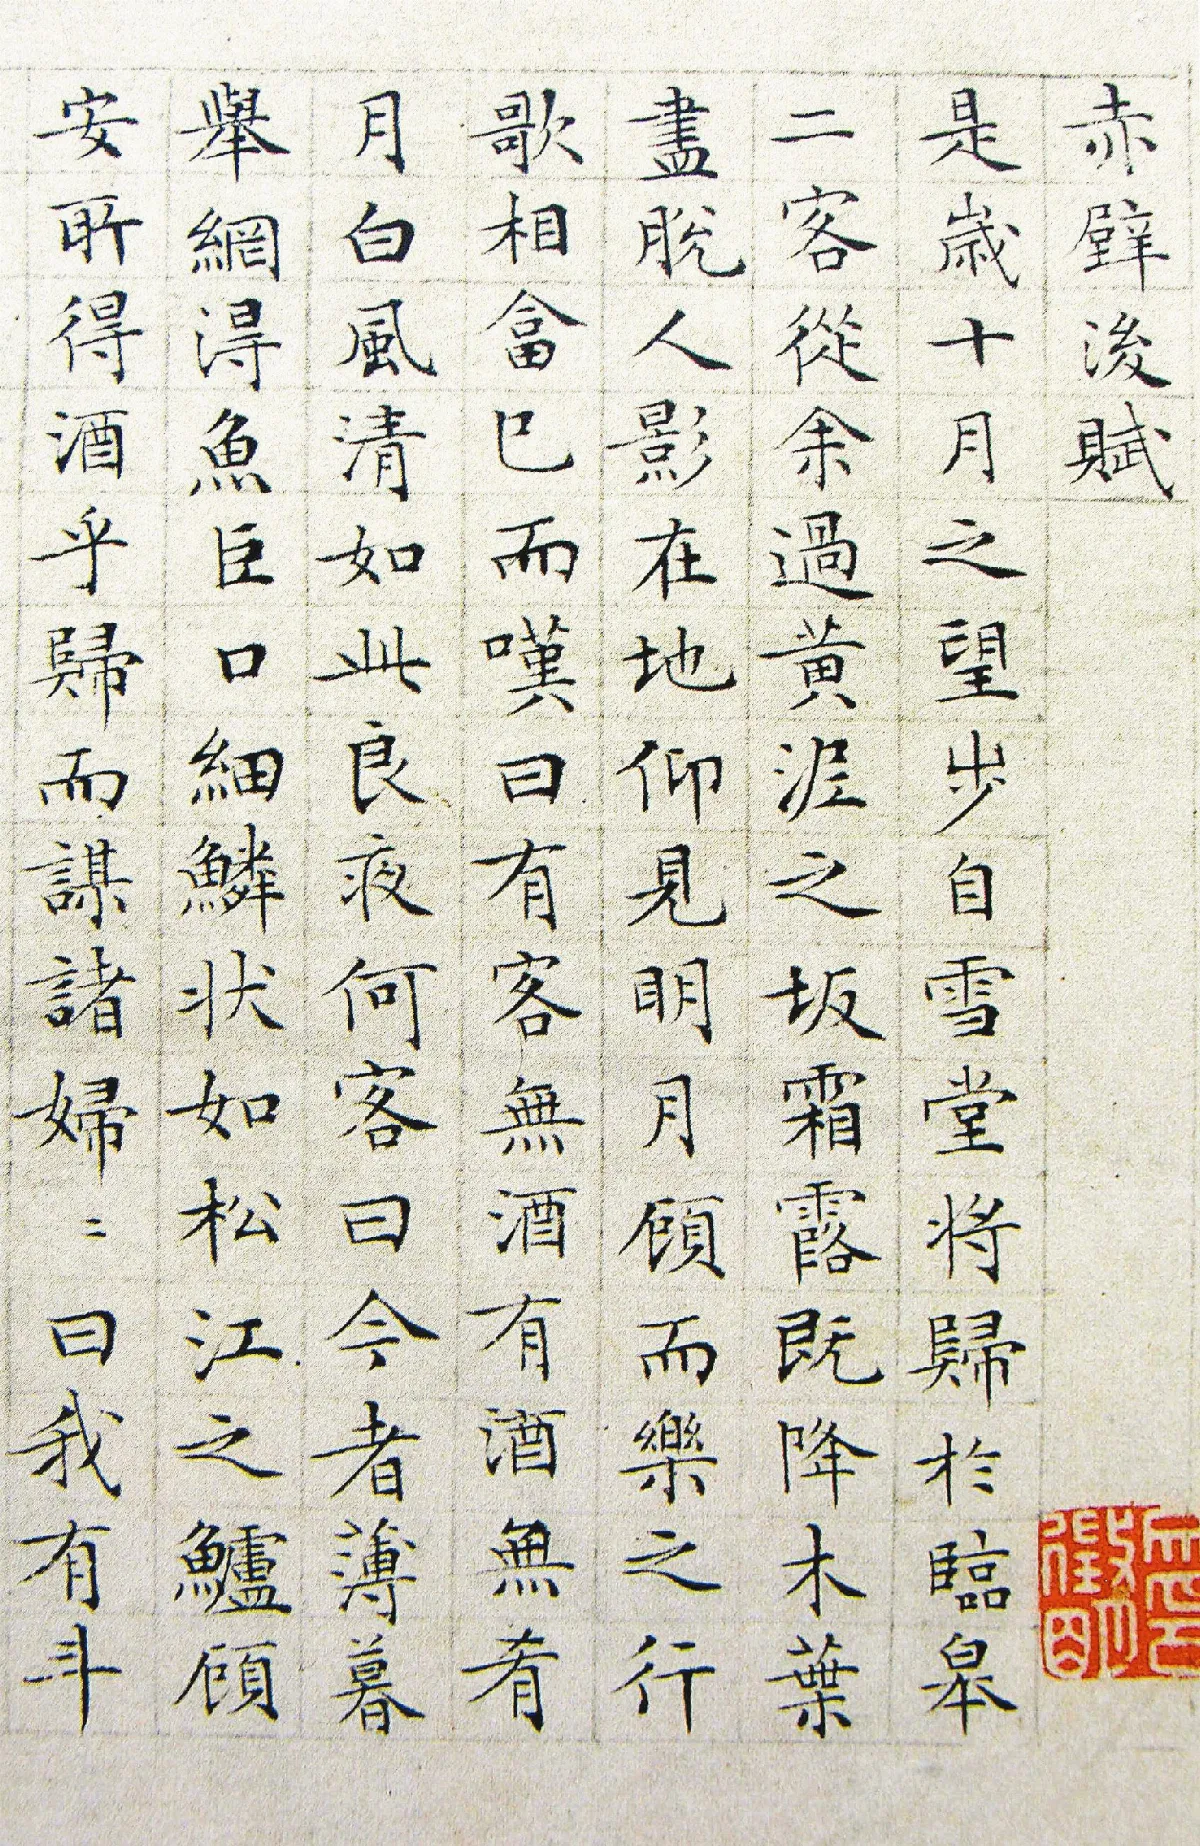 赤壁後賦
是歲十月之望步自雪堂將歸於臨皋
二客從余過黃泥之坂霜露既降木葉
盡脫人影在地仰見明月顧而樂之行
歌相畣已而嘆曰有客無酒有酒無肴
月白風清如此良夜何客曰今者薄暮
舉網得魚巨口細鱗狀如松江之鱸顧
安所得酒乎歸而謀諸婦〻曰我有斗
徵明